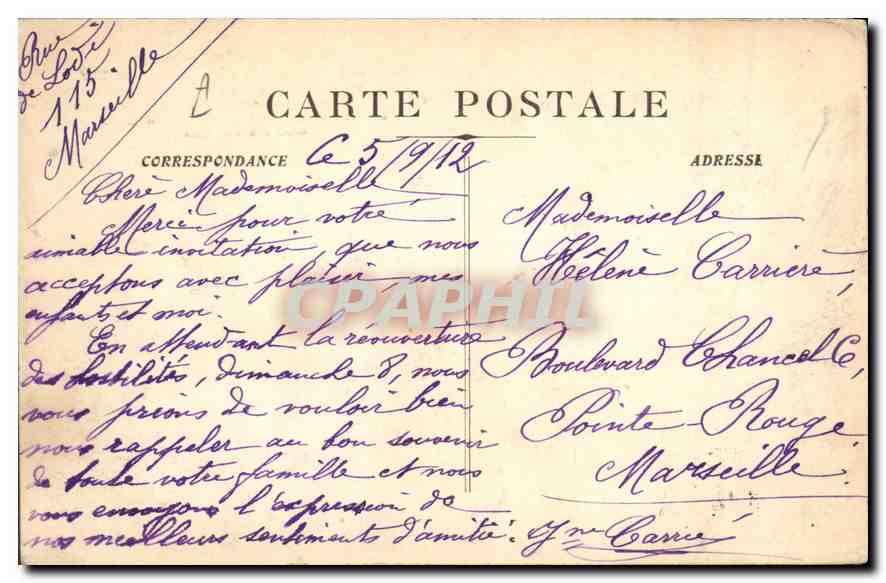 Rue
de Lodi
115
Marseille
CARTE POSTALE
CORRESPONDANCE
Le 5/9/12
ADRESSE
Chère Mademoiselle
Merci pour votre
aimable invitation, que nous
acceptons avec plaisir, mes
enfants et moi.
En attendant la réouverture
des hostilités, dimanche 8, nous
vous prions de vouloir bien
nous rappeler au bon souvenir
de toute votre famille et nous
vous envoyons l'expression de
nos meilleurs sentiments d'amitié.
Carrié
Mademoiselle
Hélène Carrière,
Boulevard Chancel 6,
Pointe-Rouge
Marseille.
CPAPHIL